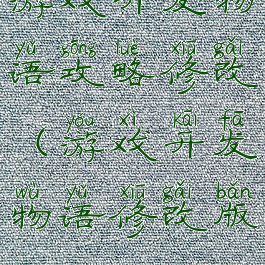 游戏开发物
yǔ gōng lüè xiū gǎi
语攻略修改
yóu xì kāi fā
（游戏开发
wù yǔ xiū gǎi bǎn
物语修改版